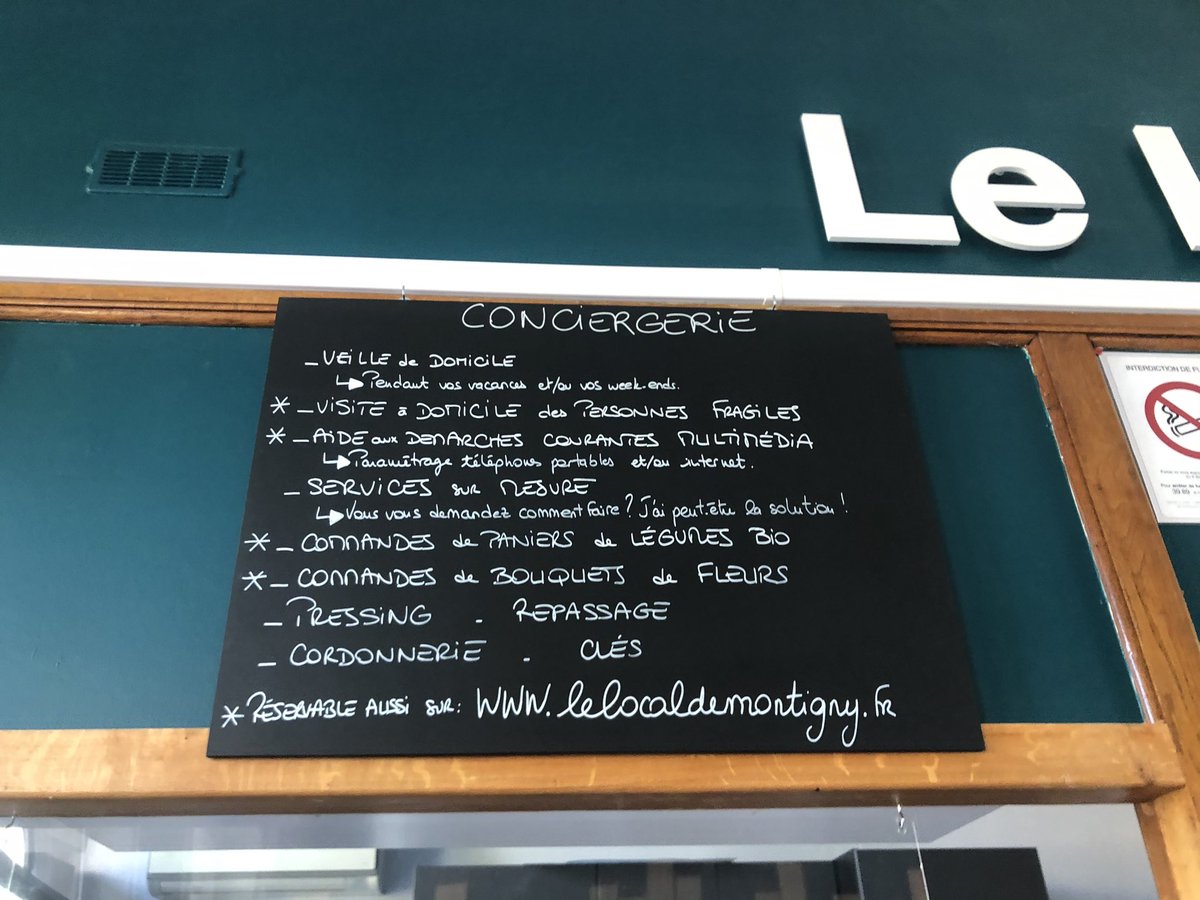 Le
CONCIERGERIE
– VEILLE de DOMICILE
↳ Pendant vos vacances et/ou vos week-ends.
* – VISITE à DOMICILE des PERSONNES FRAGILES
* – AIDE aux DEMARCHES COURANTES MULTIMÉDIA
↳ Paramétrage téléphones portables et/ou internet.
– SERVICES sur MESURE
↳ Vous vous demandez comment faire ? J'ai peut-être la solution !
* – COMMANDES de PANIERS de LÉGUMES BIO
* – COMMANDES de BOUQUETS de FLEURS
– PRESSING - REPASSAGE
– CORDONNERIE - CLÉS
* RÉSERVABLE AUSSI SUR : WWW.lelocaldemontigny.FR
INTERDICTION DE FU